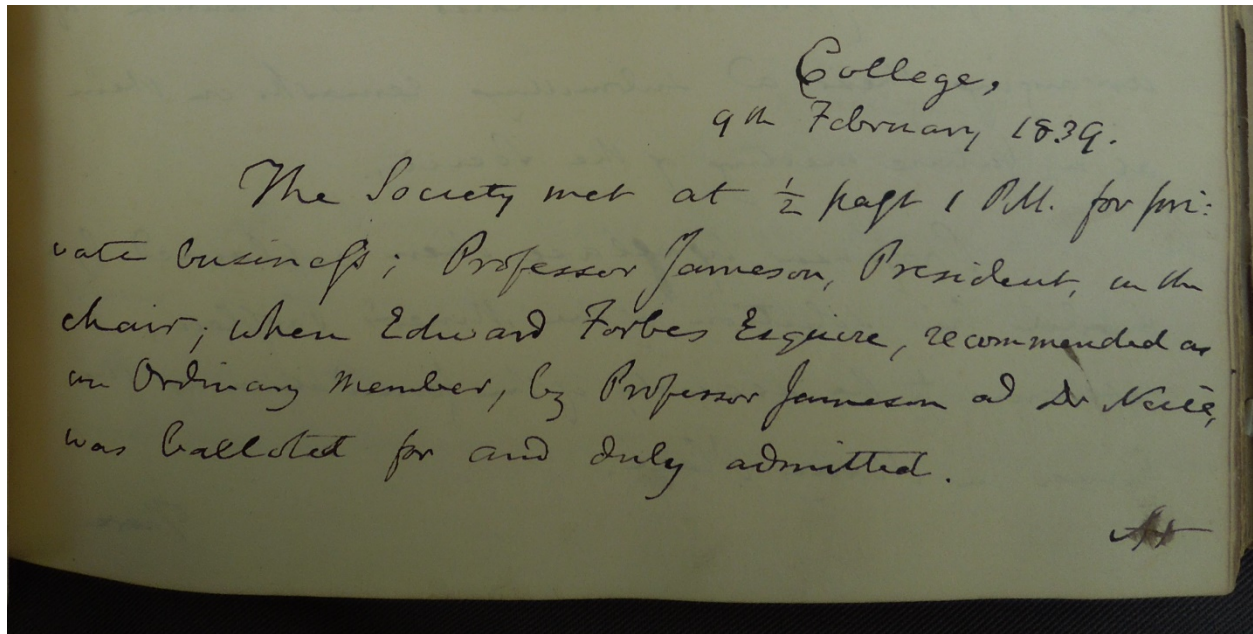 College,
9th February 1839.
The Society met at ½ past 1 P.M. for pri:
vate business; Professor Jameson, President, in the
chair; when Edward Forbes Esquire, recommended as
an Ordinary Member, by Professor Jameson and Dr Neill,
was balloted for and duly admitted.
At